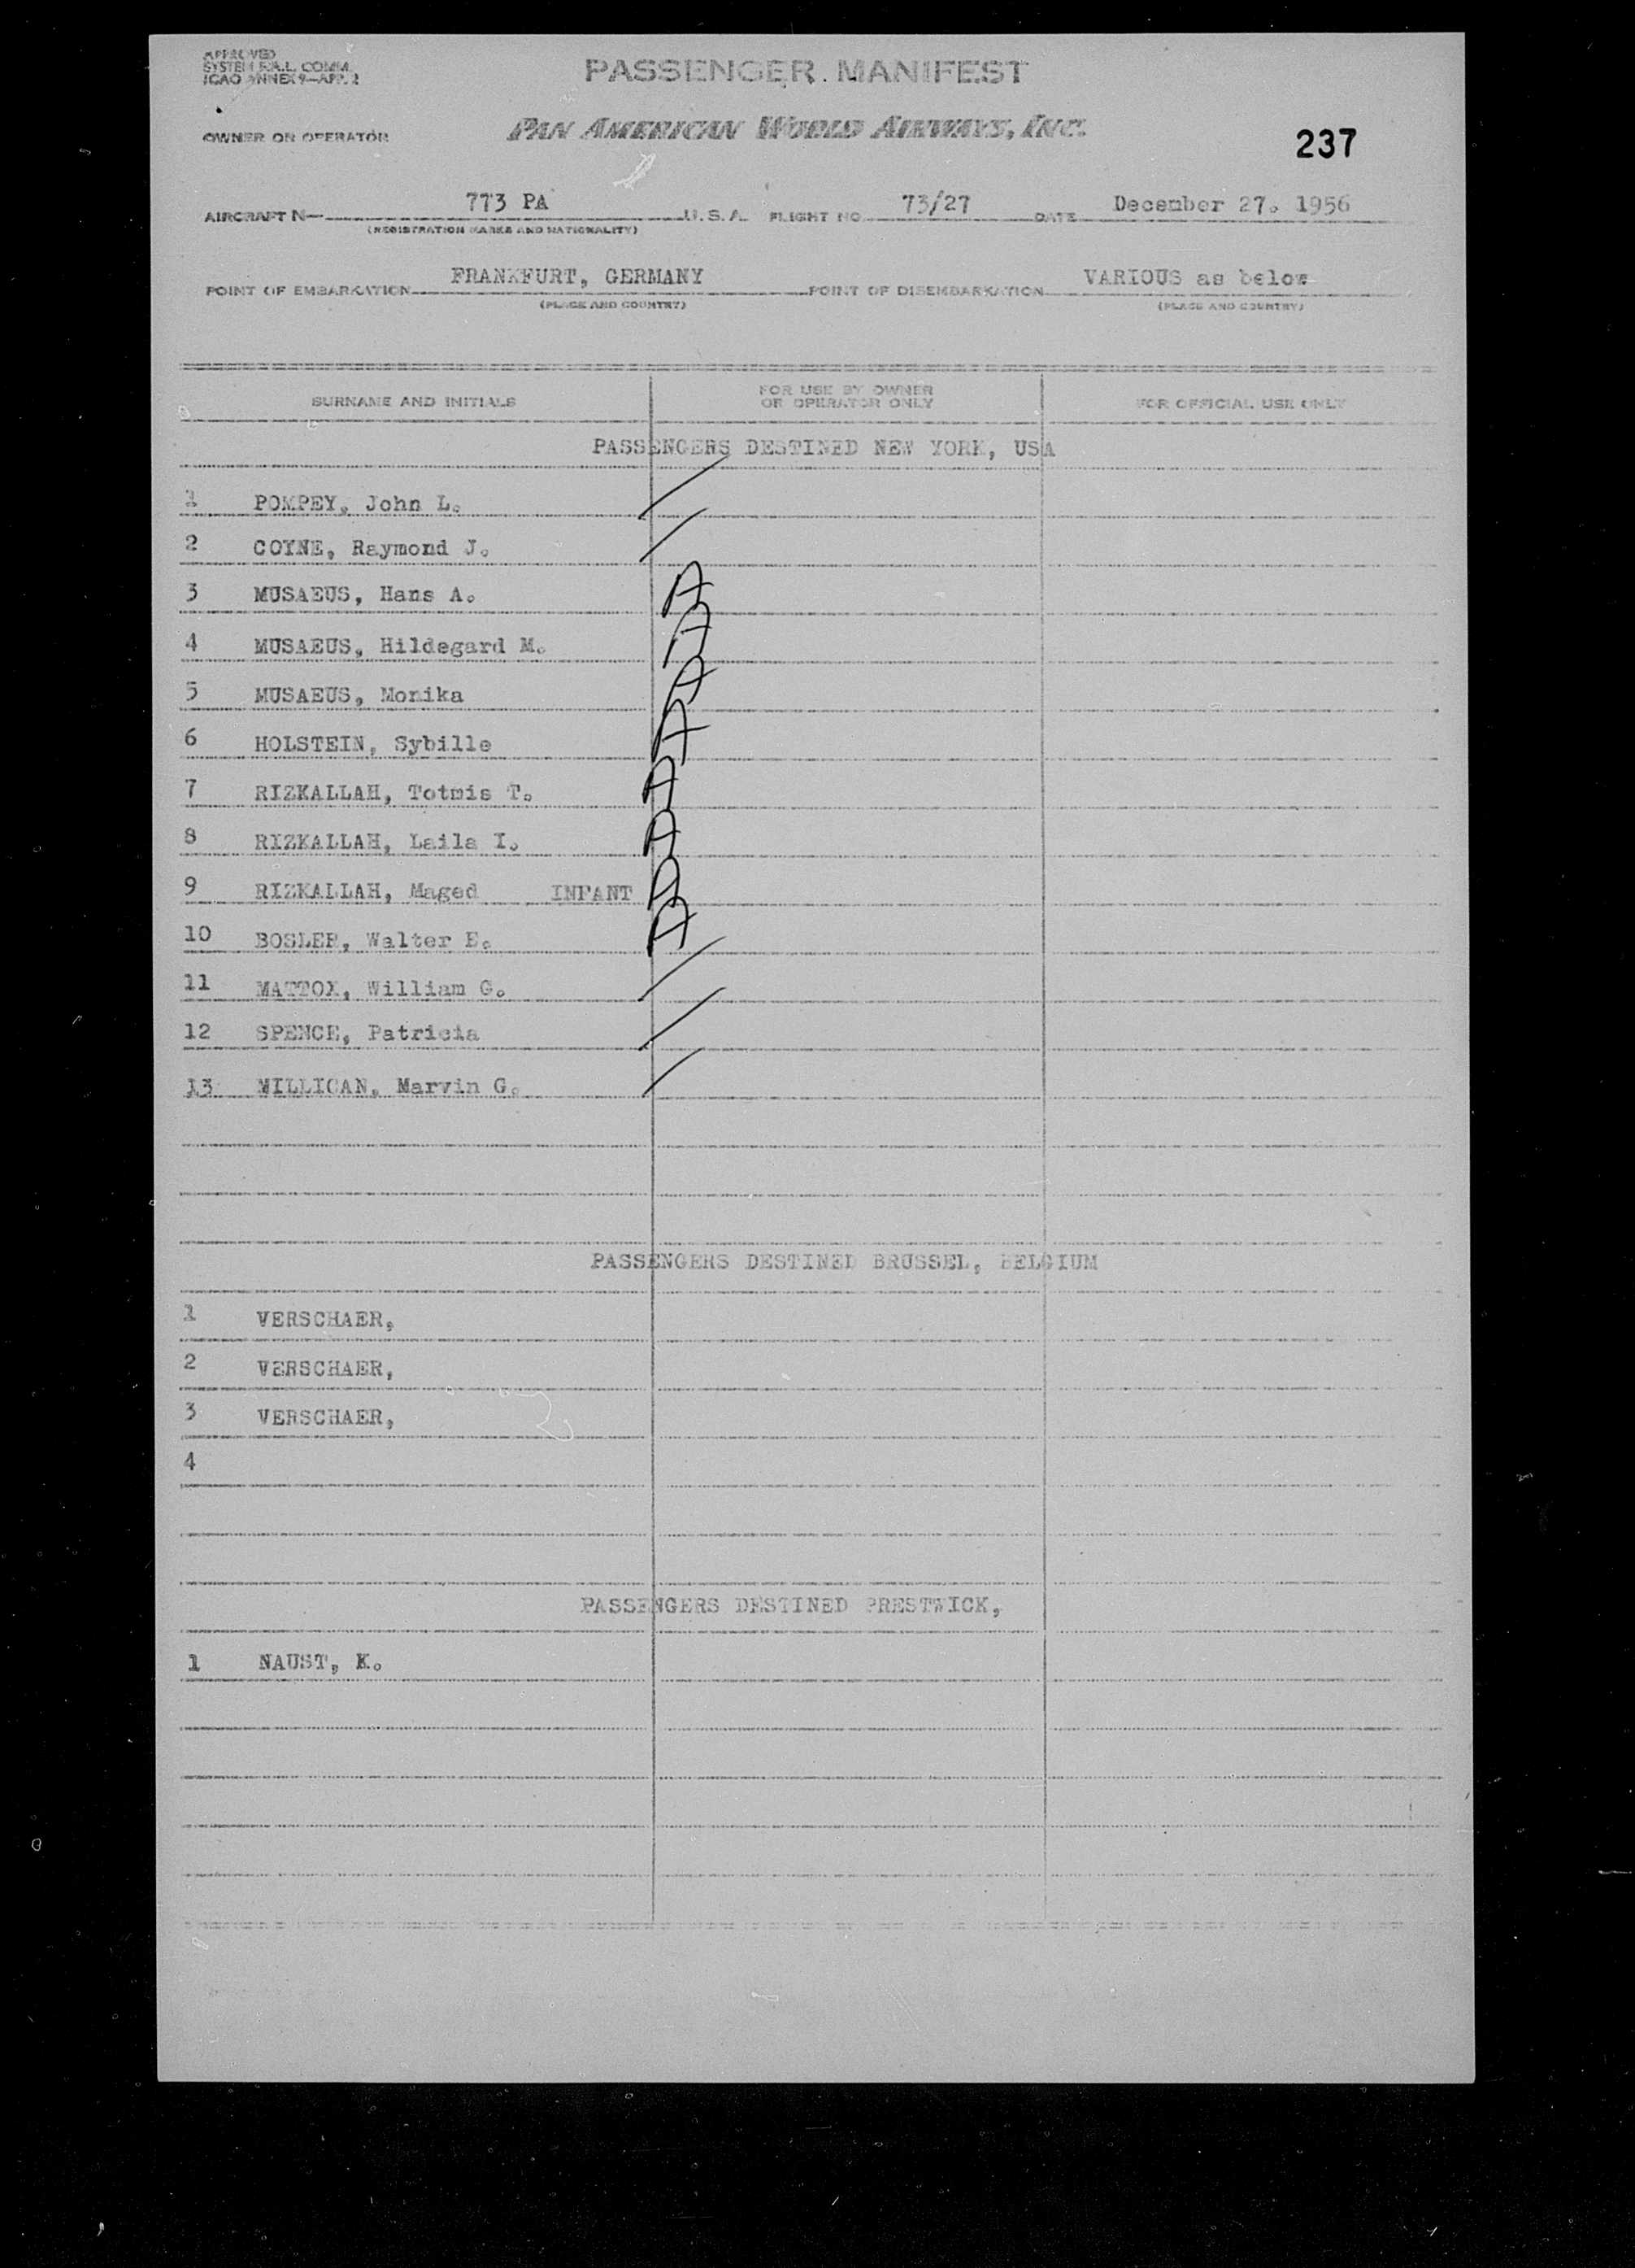 APPROVED
SYSTEM F.A.L. COMM.
ICAO ANNEX 9—APP. 2
PASSENGER MANIFEST
OWNER OR OPERATOR PAN AMERICAN WORLD AIRWAYS, INC.
237
AIRCRAFT N— 773 PA U.S.A. FLIGHT NO. 73/27 DATE December 27. 1956
(REGISTRATION MARKS AND NATIONALITY)
POINT OF EMBARKATION FRANKFURT, GERMANY POINT OF DISEMBARKATION VARIOUS as below
(PLACE AND COUNTRY) (PLACE AND COUNTRY)
SURNAME AND INITIALS FOR USE BY OWNER OR OPERATOR ONLY FOR OFFICIAL USE ONLY
PASSENGERS DESTINED NEW YORK, USA
1 POMPEY, John L. /
2 COYNE, Raymond J. /
3 MUSAEUS, Hans A. A
4 MUSAEUS, Hildegard M. A
5 MUSAEUS, Monika A
6 HOLSTEIN, Sybille A
7 RIZKALLAH, Totmis T. A
8 RIZKALLAH, Laila I. A
9 RIZKALLAH, Maged INFANT A
10 BOSLER, Walter E. A
11 MATTOX, William G. /
12 SPENCE, Patricia /
13 MILLICAN, Marvin G. /
PASSENGERS DESTINED BRUSSEL, BELGIUM
1 VERSCHAER,
2 VERSCHAER,
3 VERSCHAER,
4
PASSENGERS DESTINED PRESTWICK,
1 NAUST, K.